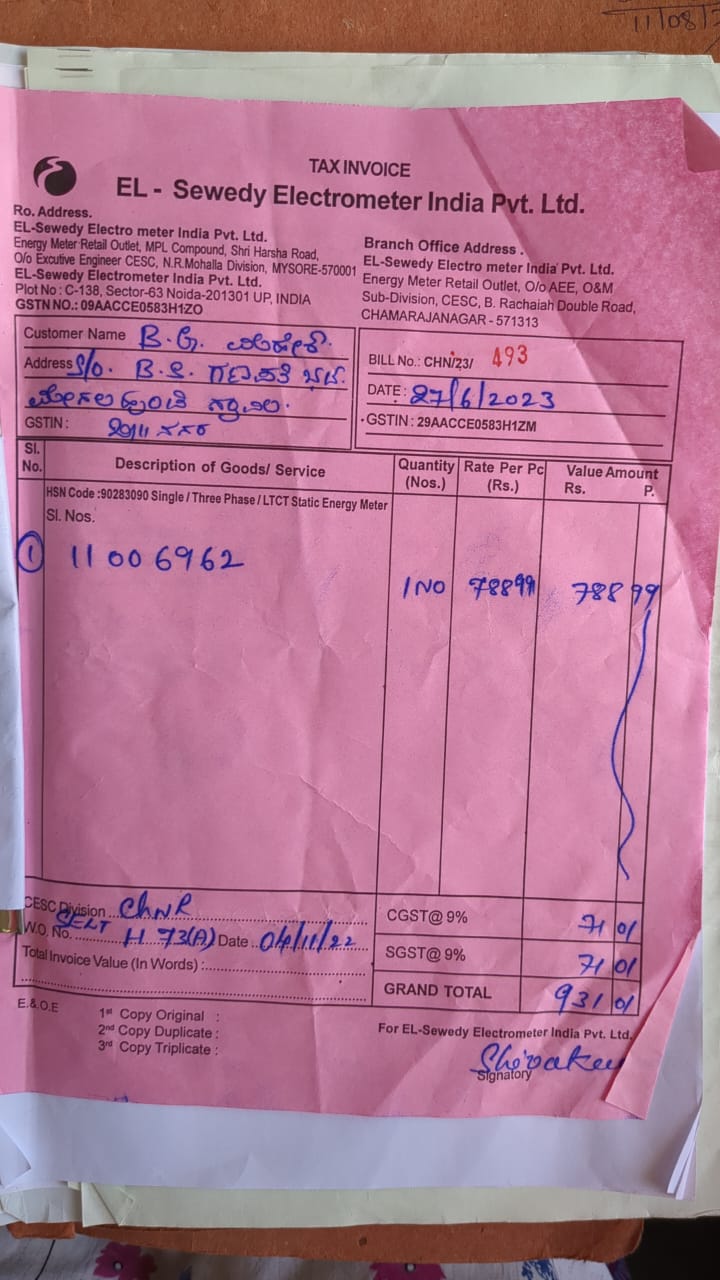 11/08/
TAX INVOICE
EL - Sewedy Electrometer India Pvt. Ltd.
Ro. Address.
EL-Sewedy Electro meter India Pvt. Ltd.
Energy Meter Retail Outlet, MPL Compound, Shri Harsha Road,
O/o Excutive Engineer CESC, N.R.Mohalla Division, MYSORE-570001
EL-Sewedy Electrometer India Pvt. Ltd.
Plot No : C-138, Sector-63 Noida-201301 UP, INDIA
GSTN NO.: 09AACCE0583H1ZO
Branch Office Address .
EL-Sewedy Electro meter India Pvt. Ltd.
Energy Meter Retail Outlet, O/o AEE, O&M
Sub-Division, CESC, B. Rachaiah Double Road,
CHAMARAJANAGAR - 571313
Customer Name B.G.
Address S/o. B.S. ಗಣಪತಿ
GSTIN :
BILL No.: CHN/23/ 493
DATE : 27/6/2023
GSTIN : 29AACCE0583H1ZM
Sl. No. Description of Goods/ Service Quantity (Nos.) Rate Per Pc (Rs.) Value Amount Rs. P.
HSN Code :90283090 Single / Three Phase / LTCT Static Energy Meter
Sl. Nos.
1 11006962
1 NO 788 99 788 99
CESC Division ChNR
W.O. No. SELT H 73(A) Date 04/11/22
Total Invoice Value (In Words) :
CGST@ 9% 71 01
SGST@ 9% 71 01
GRAND TOTAL 931 01
E.&.O.E
1st Copy Original :
2nd Copy Duplicate :
3rd Copy Triplicate :
For EL-Sewedy Electrometer India Pvt. Ltd.
Signatory